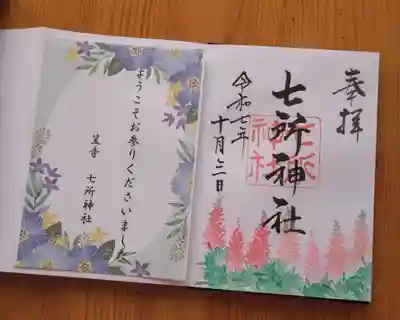 ようこそお参りくださいました
笠寺　七所神社
奉拝
七所神社
七所神社
令和七年
十月三日